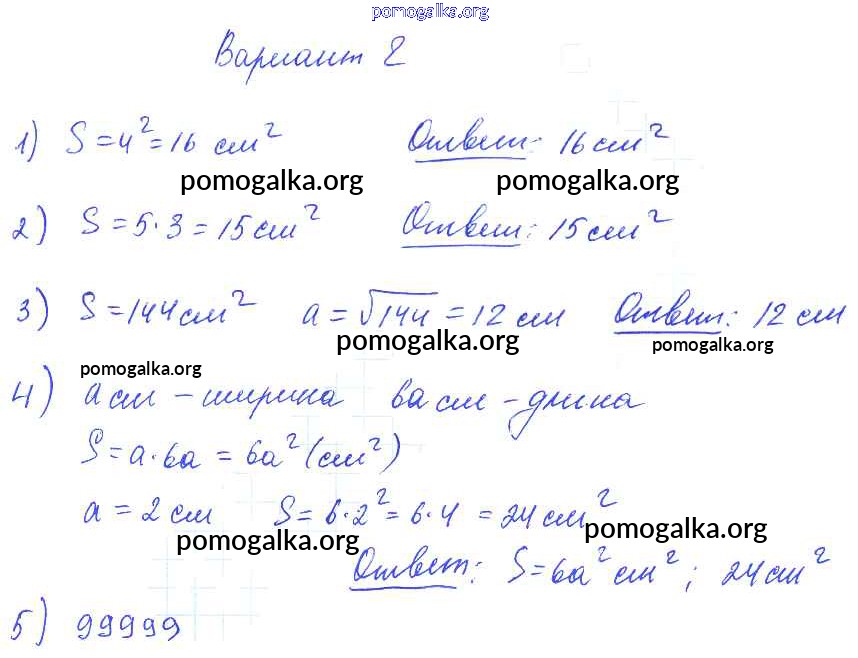 pomogalka.org
Вариант 2
1) S = 4² = 16 см² Ответ: 16 см²
pomogalka.org pomogalka.org
2) S = 5·3 = 15 см² Ответ: 15 см²
3) S = 144 см² a = √144 = 12 см Ответ: 12 см
pomogalka.org pomogalka.org
pomogalka.org
4) a см – ширина 6a см – длина
S = a·6a = 6a² (см²)
a = 2 см S = 6·2² = 6·4 = 24 см²
pomogalka.org pomogalka.org
Ответ: S = 6a² см²; 24 см²
5) 99999